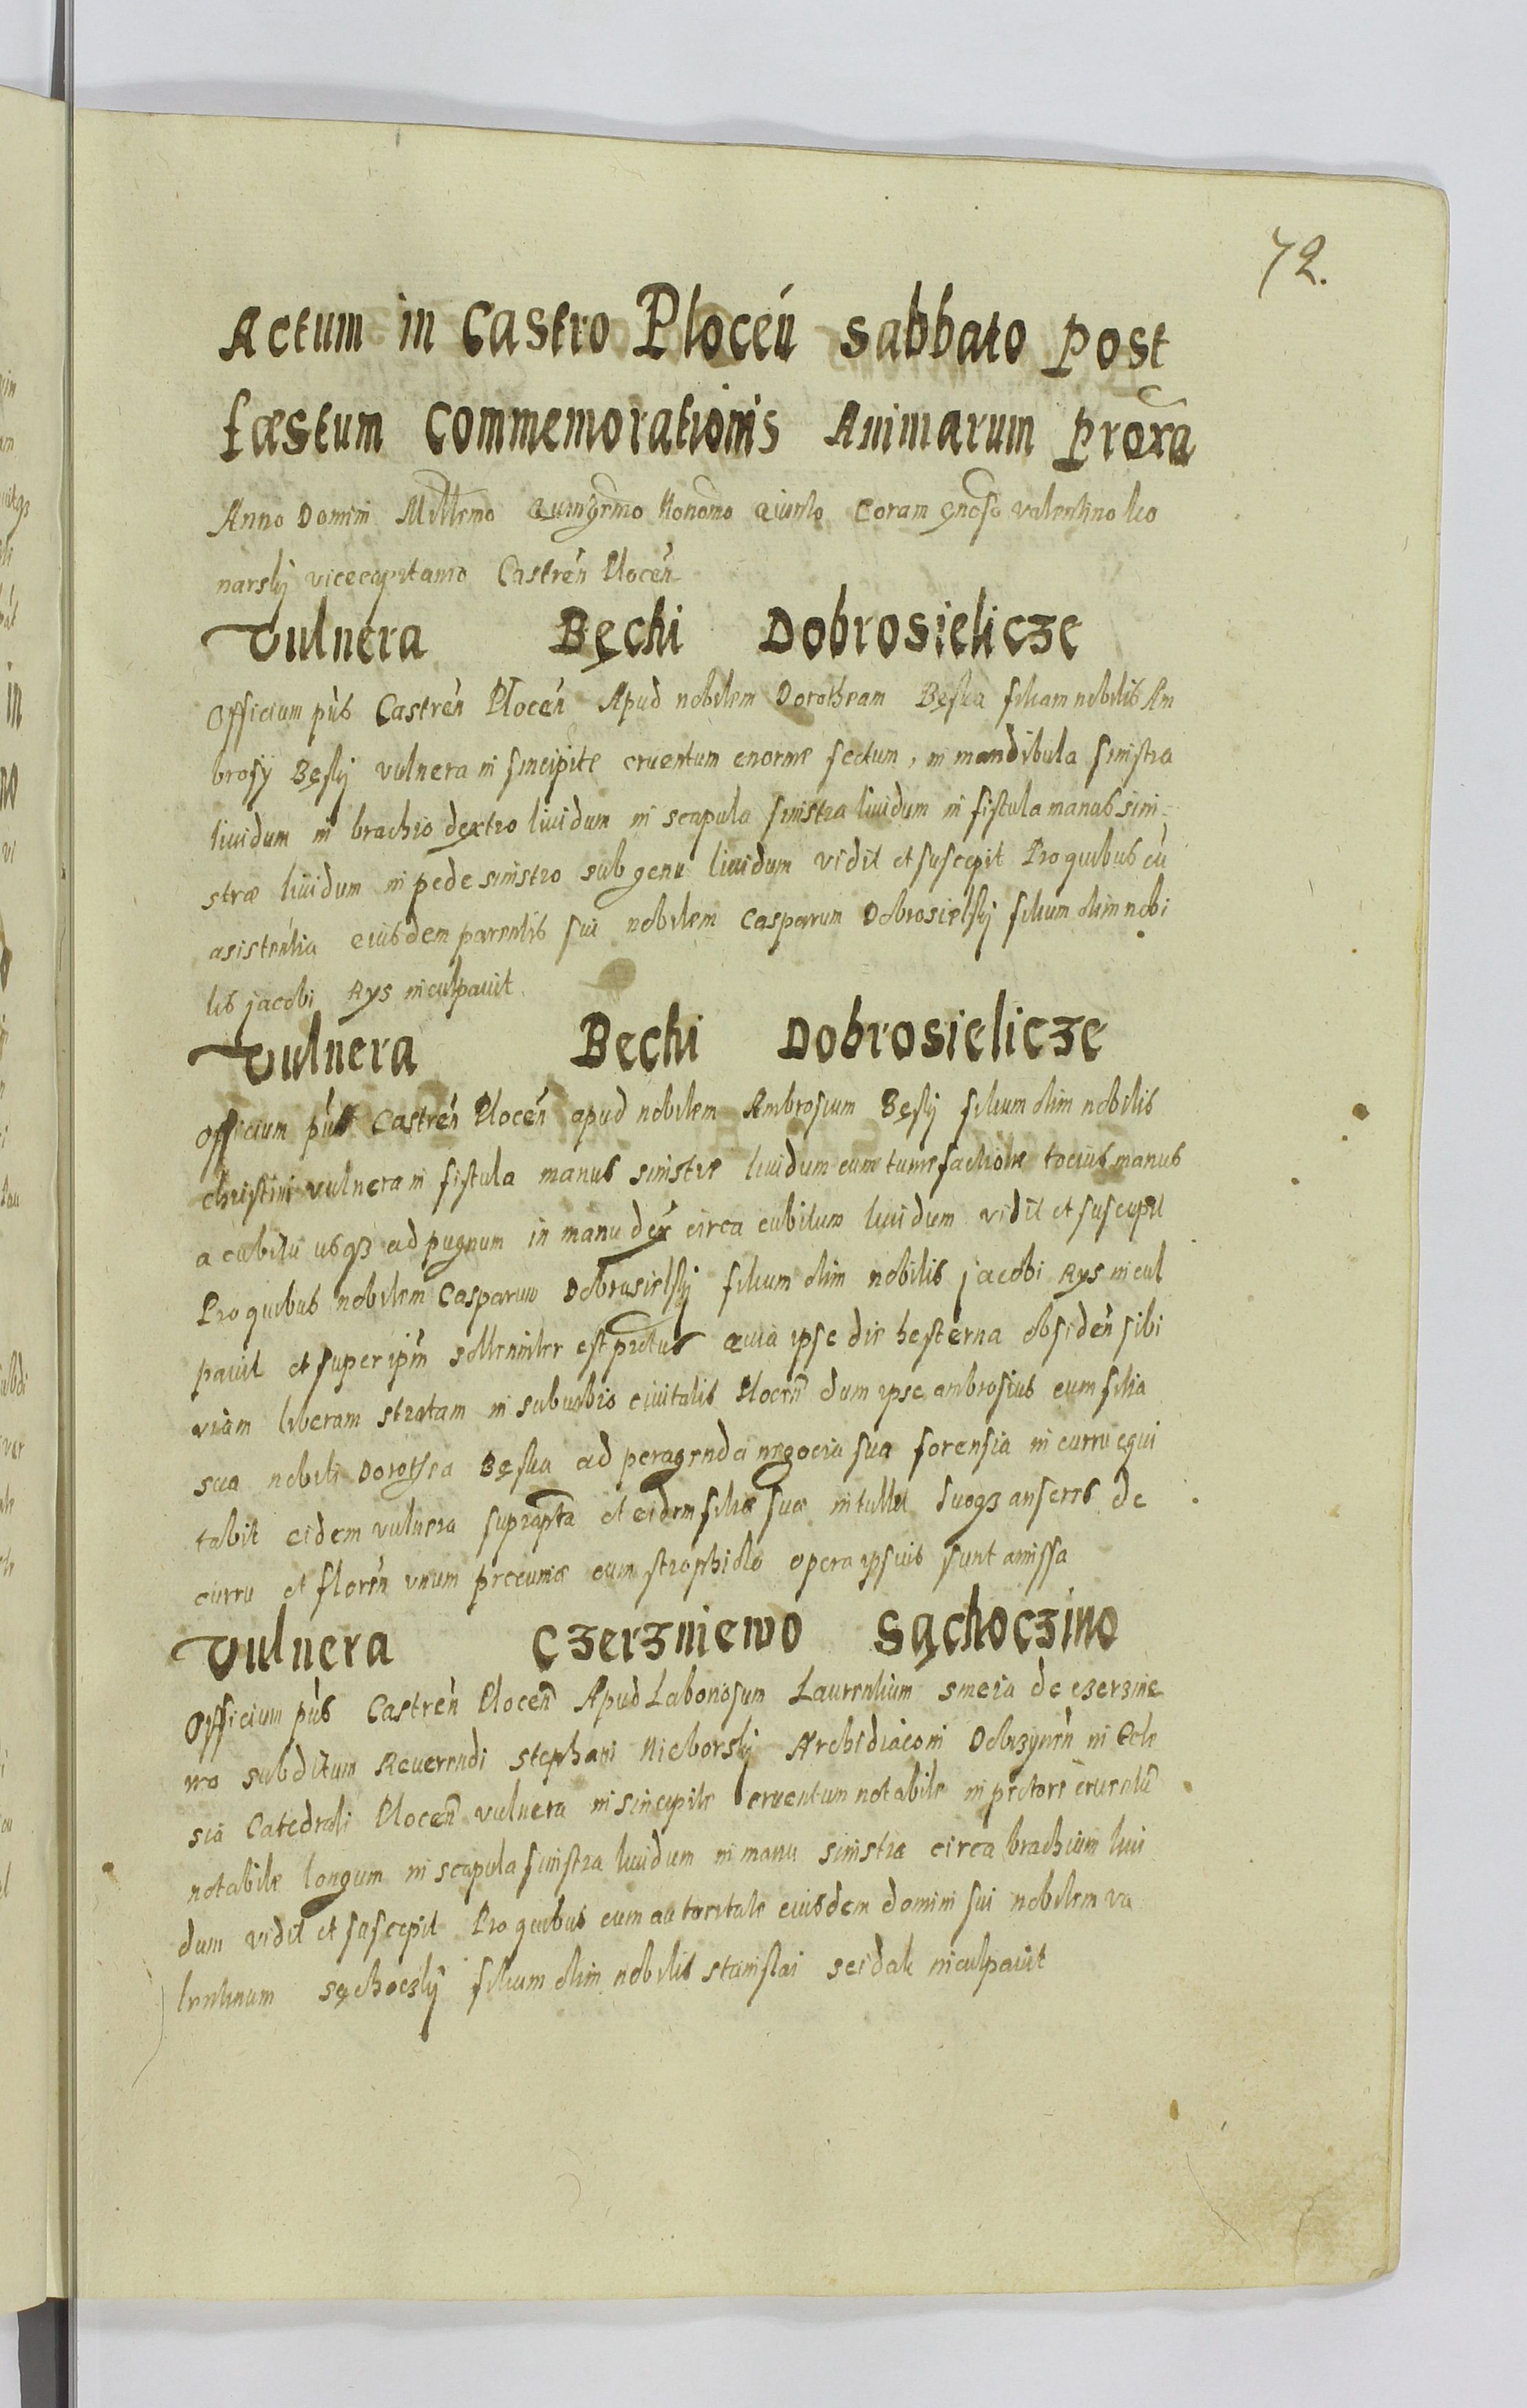 72.
Actum in Castro Plocen̄ Sabbato post
fæstum Commemorationis Animarum Proxa
Anno Domini Millemo Quingēmo Nonōmo Quinto Coram gnoso Valentino Leo
narskij vicecapitaneo Castren̄ Plocen̄
Vulnera Bęchi Dobrosielicze
Officium pn̄s Castren̄ Plocen̄ Apud nobilem Dorotheam Bęska filiam nobilis Am
brosij Bęskij vulnera in sincipite cruentum enorme sectum, in mandibula sinistra
liuidum in brachio dextro liuidum in scapula sinistra liuidum in fistula manus sini-
stræ liuidum in pede sinistro sub genu liuidum vidit et suscepit Pro quibus cū
asistentia eiusdem parentis sui nobilem Casparum Dobrosielskij filium olim nobi
lis jacobi Rys inculpauit
Vulnera Bęchi Dobrosielicze
Officium pn̄s Castren̄ Plocen̄ apud nobilem Ambrosium Bęskij filium olim nobilis
christini vulnera in fistula manus sinistre liuidum cum tumefactione tocius manus
a cubitu usqз ad pugnum in manu dex circa cubitum liuidum vidit et suscepit
Pro quibus nobilem Casparum Dobrosielskij filium olim nobilis jacobi Rys incul
pauit et super ipm̄ sollenniter est prtus Quia ipse die hesterna obsiden̄ sibi
viam liberam stratam in suburbio ciuitatis Plocen̄ dum ipse ambrosius cum filia
sua nobili Dorothea Bęska ad peragenda negocia sua forensia in curru equi
tabit eidem vulnera suprapta et eidem filiæ suæ intullit Suoqз anseres de
curru et floren̄ vnum precuniæ cum strophiolo opera ipsius sunt amissa
Vulnera Czerzniewo Sąchoczino
Officium pn̄s Castren̄ Plocen̄ Apud Laboriosum Laurentium smeia de czerznie
wo subditum Reuerendi stephani Nieborskij Archidiaconi Dobrzynen̄ in Ecle
sia Catedrali Plocen̄ vulnera in sincipite cruentum notabile in pectore cruentū
notabile longum in scapula sinistra liuidum in manu sinistra circa brachium liui
dum vidit et suscepit Pro quibus cum autoritate eiusdem domini sui nobilem va
lentinum sąchoczkij filium olim nobilis stanislai seidak inculpauit